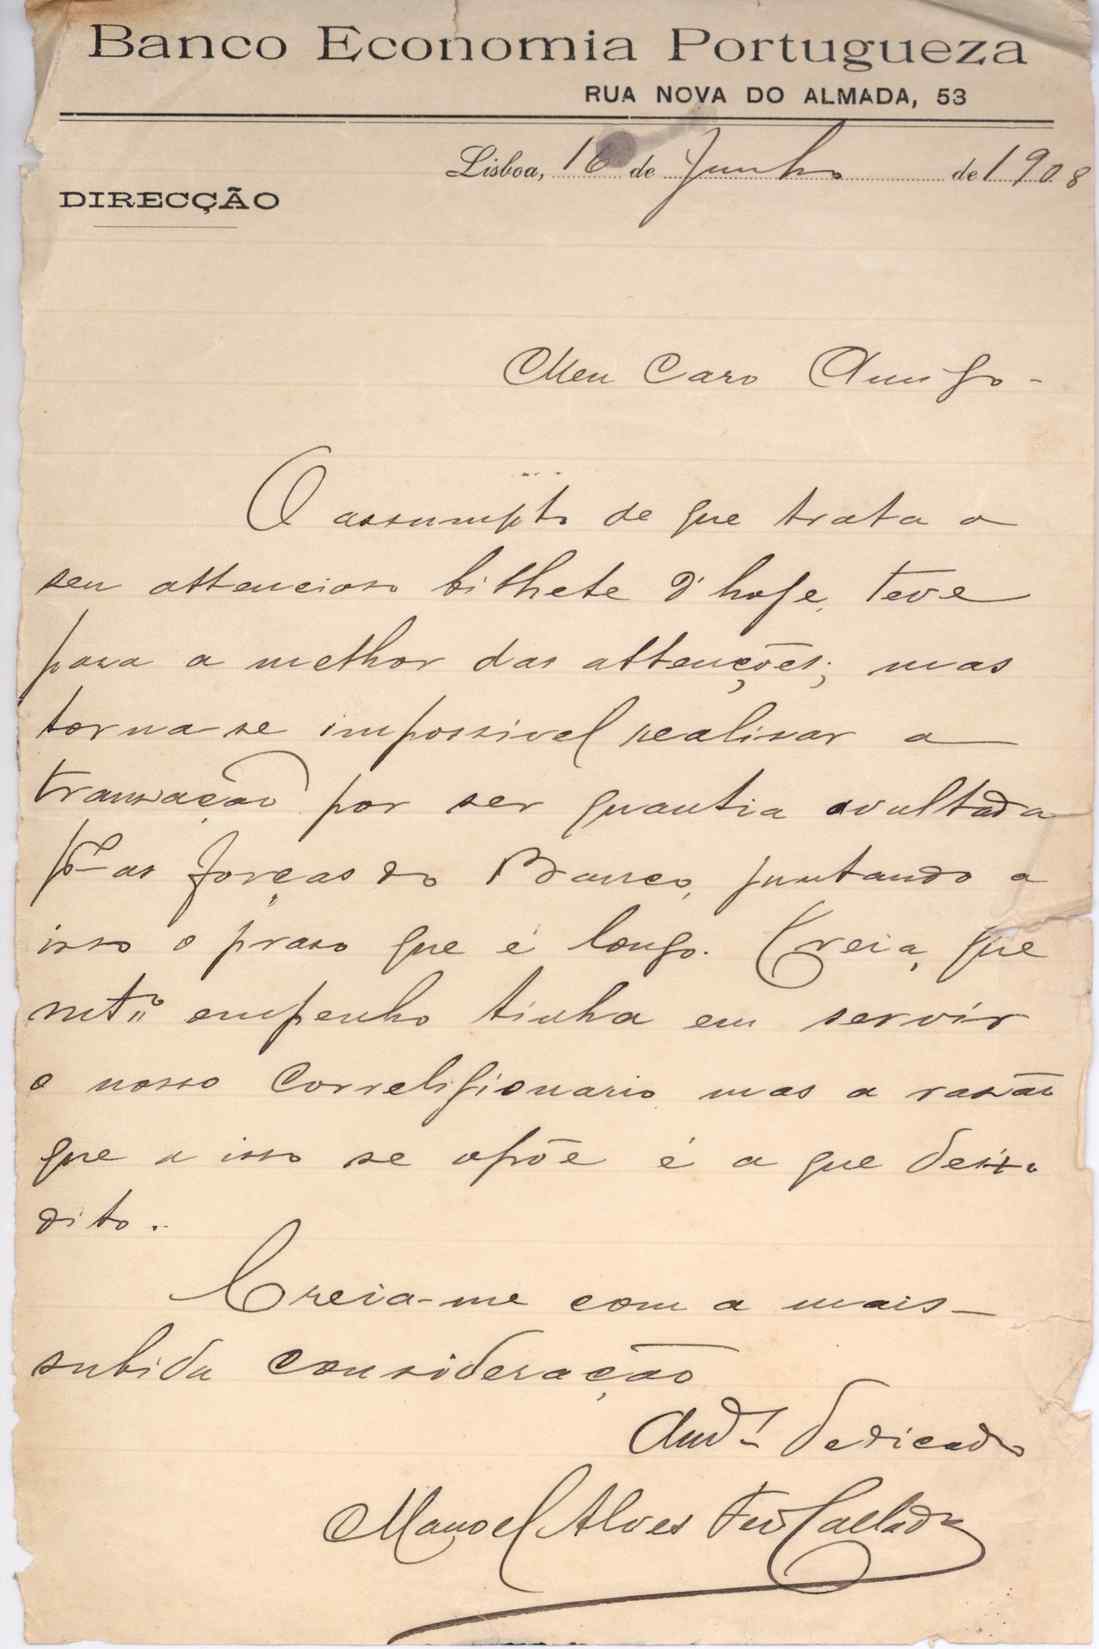 Banco Economia Portugueza
RUA NOVA DO ALMADA, 53
Lisboa, 16 de Junho de 1908
DIRECÇÃO
Meu Caro Amigo -
O assumpto de que trata o
seu attencioso bilhete d'hoje, teve
para a melhor das attenções; mas
torna-se impossivel realisar a
transação por ser quantia avultada
pª as forças do Banco, juntando a
isso o praso que é longo. Creia, que
mtº empenho tinha em servir
o nosso Correligionario mas a rasão
que a isso se opõe é a que deixo
dito.
Creia-me com a mais
subida consideração
dedicado
Manoel Alves